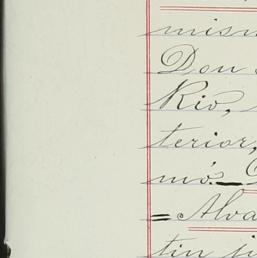 mism
Don
Rio,
terior,
mó.
= Alva
tin ju